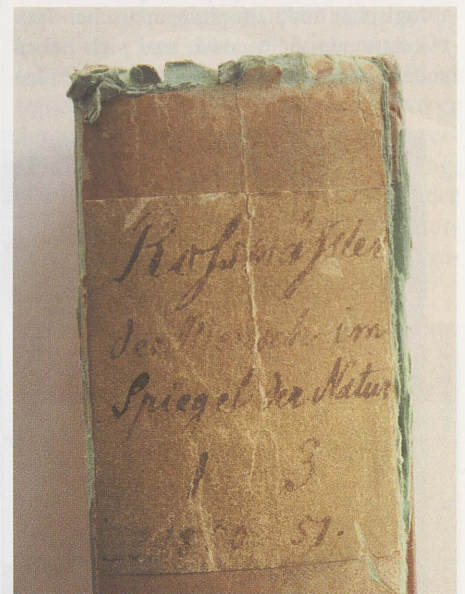 Rossmässler
der Mensch im
Spiegel der Natur
1 3
1850 51.